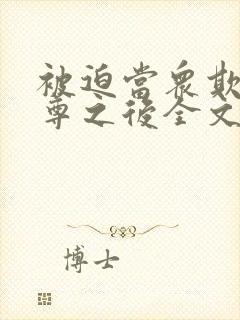 被迫當衆欺
尊之後全文
博士